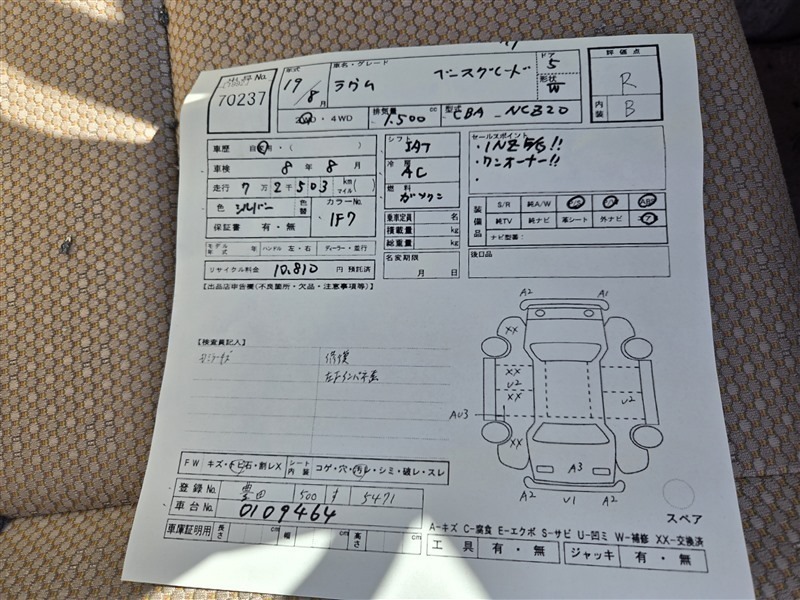 出品 No. 70237
年式 19/8月
車名・グレード ラウム ベースグレード
ドア 5
形状 W
評価点 R
内装 B
2WD・4WD
排気量 1.500 cc
型式 CBA-NCZ20
車歴 自家用・( )
シフト IAT
セールスポイント
・1NZ 5G!!
・ワンオーナー!!
・
車検 8年8月
冷房 AC
走行 7万2千503 km マイル( )
燃料 ガソリン
色 シルバー 色替 カラーNo. 1F7
保証書 有・無
乗車定員 名
積載量 kg
総重量 kg
装備品 S/R 純A/W P/S P/W ABS
純TV 純ナビ 革シート 外ナビ エアB
ナビ型番:
モデル年式 年 ハンドル 左・右 ディーラー・並行
名変期限 月 日
後日品
リサイクル料金 10,810 円 預託済
【出品店申告欄(不良箇所・欠品・注意事項等)】
【検査員記入】
修復
A2 A1
XX
XX
U2
XX
U2
AU3
XX
A3
A2 U1 A2
スペア
FW キズ・トビ石・割レX シート内装 コゲ・穴・汚レ・シミ・破レ・スレ
登録No. 500 す 5471
車台No. 0109464
A-キズ C-腐食 E-エクボ S-サビ U-凹ミ W-補修 XX-交換済
車庫証明用 長さ cm 幅 cm 高さ cm
工具 有・無 ジャッキ 有・無